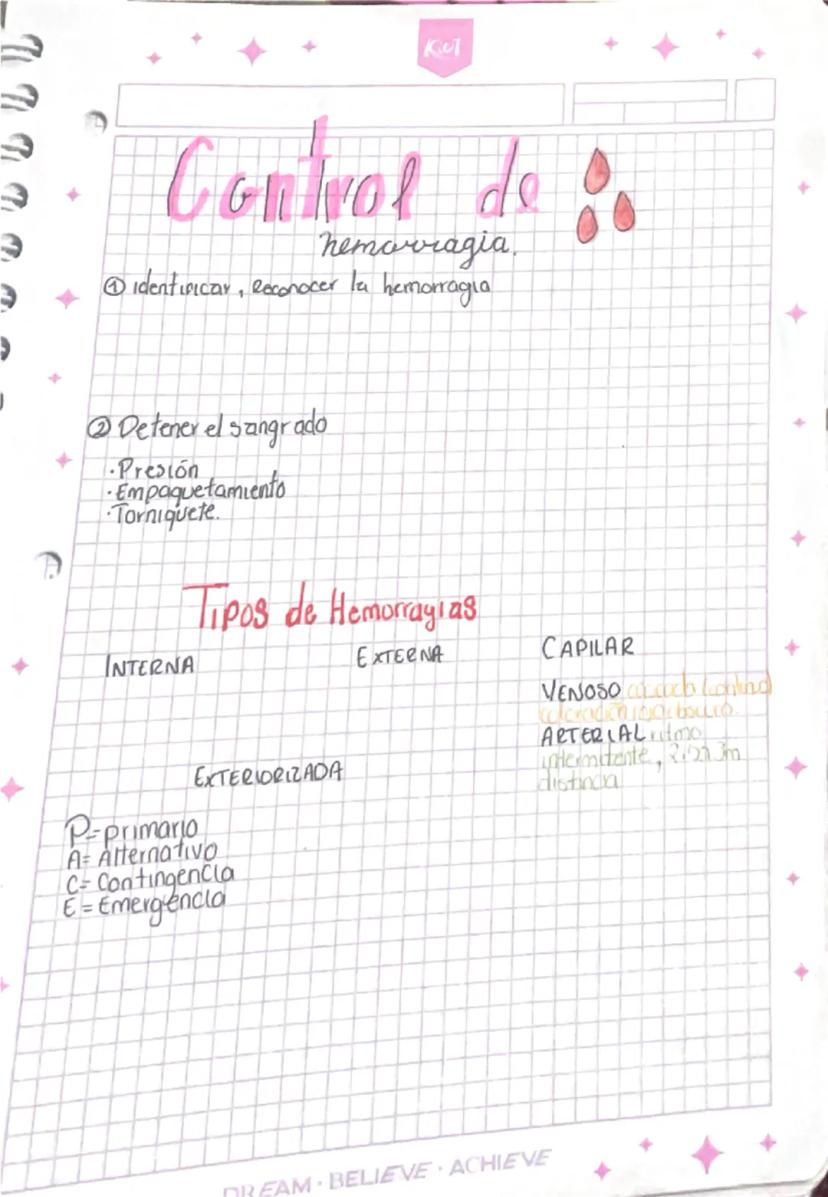 KIUT
Control de
hemorragia.
① identificar, Reconocer la hemorragia
② Detener el sangrado
·Presión
·Empaquetamiento
·Torniquete.
Tipos de Hemorragias
INTERNA
EXTERNA
CAPILAR
VENOSO
ARTERIAL ritmo
intermitente, 3m
distancia
EXTERIORIZADA
P=primario
A= Alternativo
C= Contingencia
E = Emergencia
DREAM · BELIEVE · ACHIEVE